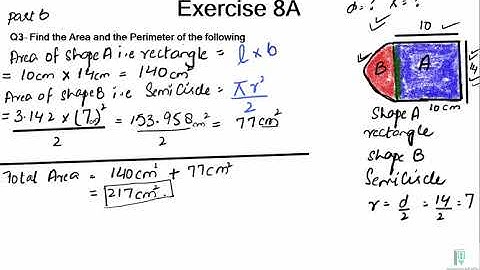 Exercise 8A
part b
d = ? r = ?
Q3- Find the Area and the Perimeter of the following
Area of shape A i.e rectangle = l x b
= 10cm x 14cm = 140cm²
Area of shape B i.e Semicircle = πr²/2
= 3.142 x (7)²/2 = 153.958cm²/2 = 77cm²
Total Area = 140cm² + 77cm²
= 217cm².
10
B
A
14
10cm
Shape A
rectangle
Shape B
Semicircle
r = d/2 = 14/2 = 7